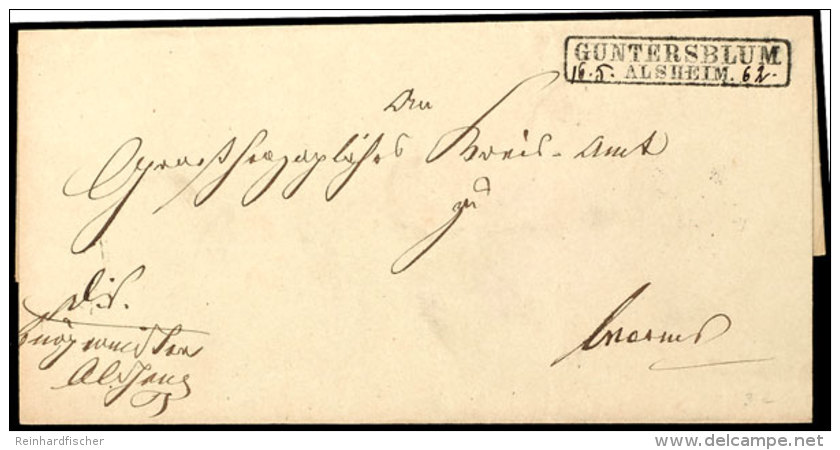 GUNTERSBLUM
16.5. ALSHEIM. 62.
An
Großherzogliches Kreis-Amt
zu
Worms
d.S.
Bürgermeister
Reinhardfischer
www.delcampe.net